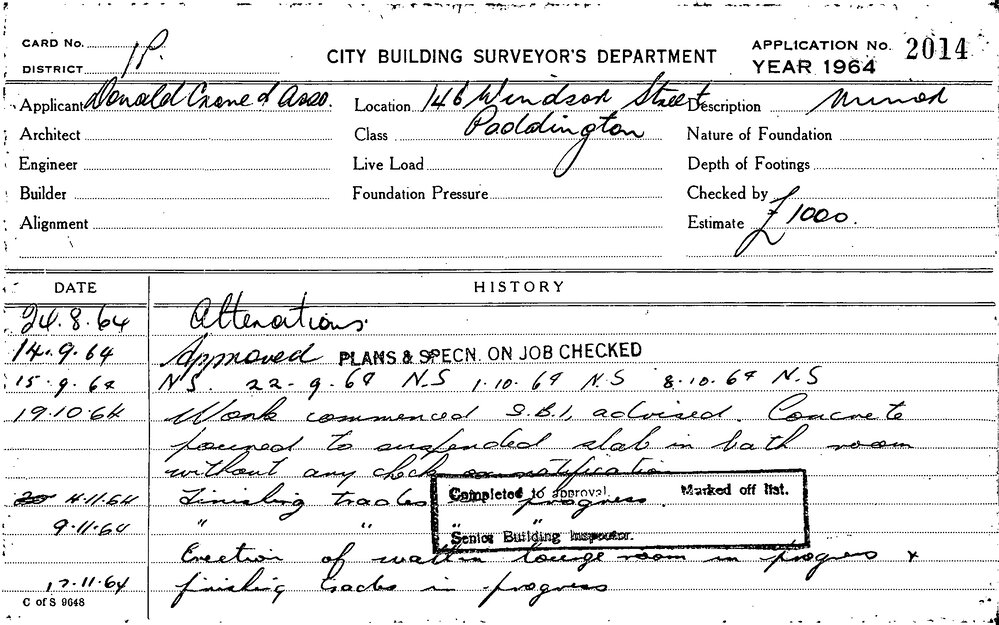 CARD No.
DISTRICT 1P.
CITY BUILDING SURVEYOR'S DEPARTMENT
APPLICATION No. 2014
YEAR 1964
Applicant Donald Crone & Asso. Location 146 Windsor Street Description Minor
Architect Class Paddington Nature of Foundation
Engineer Live Load Depth of Footings
Builder Foundation Pressure Checked by
Alignment Estimate £1000.
DATE HISTORY
24.8.64 Alterations.
14.9.64 Approved PLANS & SPECN. ON JOB CHECKED
15.9.64 N.S. 22-9.64 N.S 1.10.64 N.S 8.10.64 N.S
19.10.64 Work commenced S.B.I. advised. Concrete
poured to suspended slab in bath room
without any check or notification
4.11.64 Finishing trades progress
Completed to approval. Marked off list.
9.11.64 " " "
Senior Building Inspector.
Erection of wall in lounge room in progress +
17.11.64 finishing trades in progress
C of S 9648